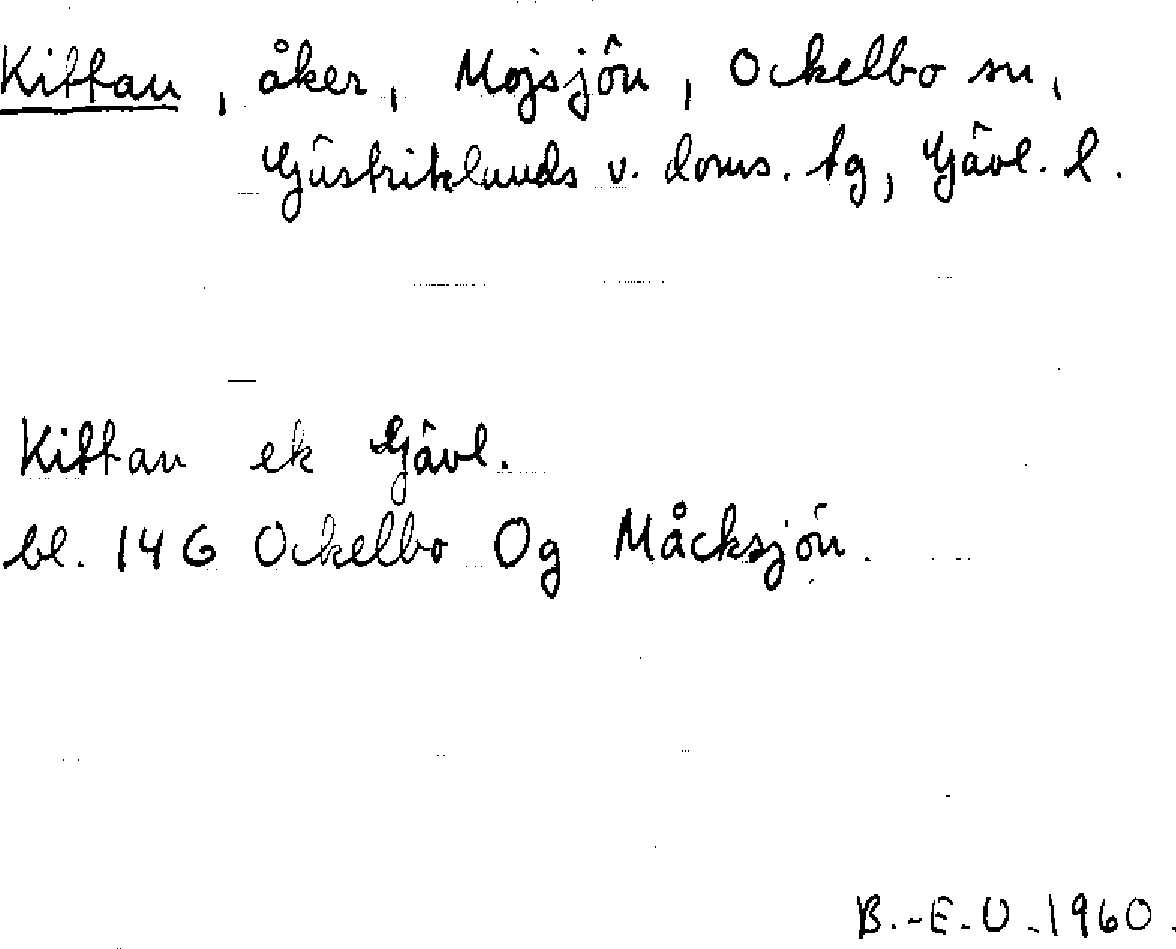 Kittan, åker, Mojsjön, Ockelbo sn,
Gästriklands v. doms. tg, Gävl. l.
Kittan ek Gävl.
bl. 146 Ockelbo Og Måcksjön.
B.-E.O.1960.